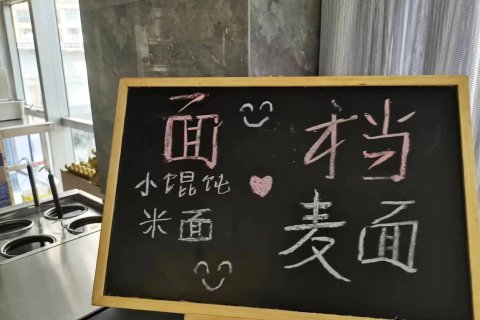 面档
小馄饨
米面
麦面